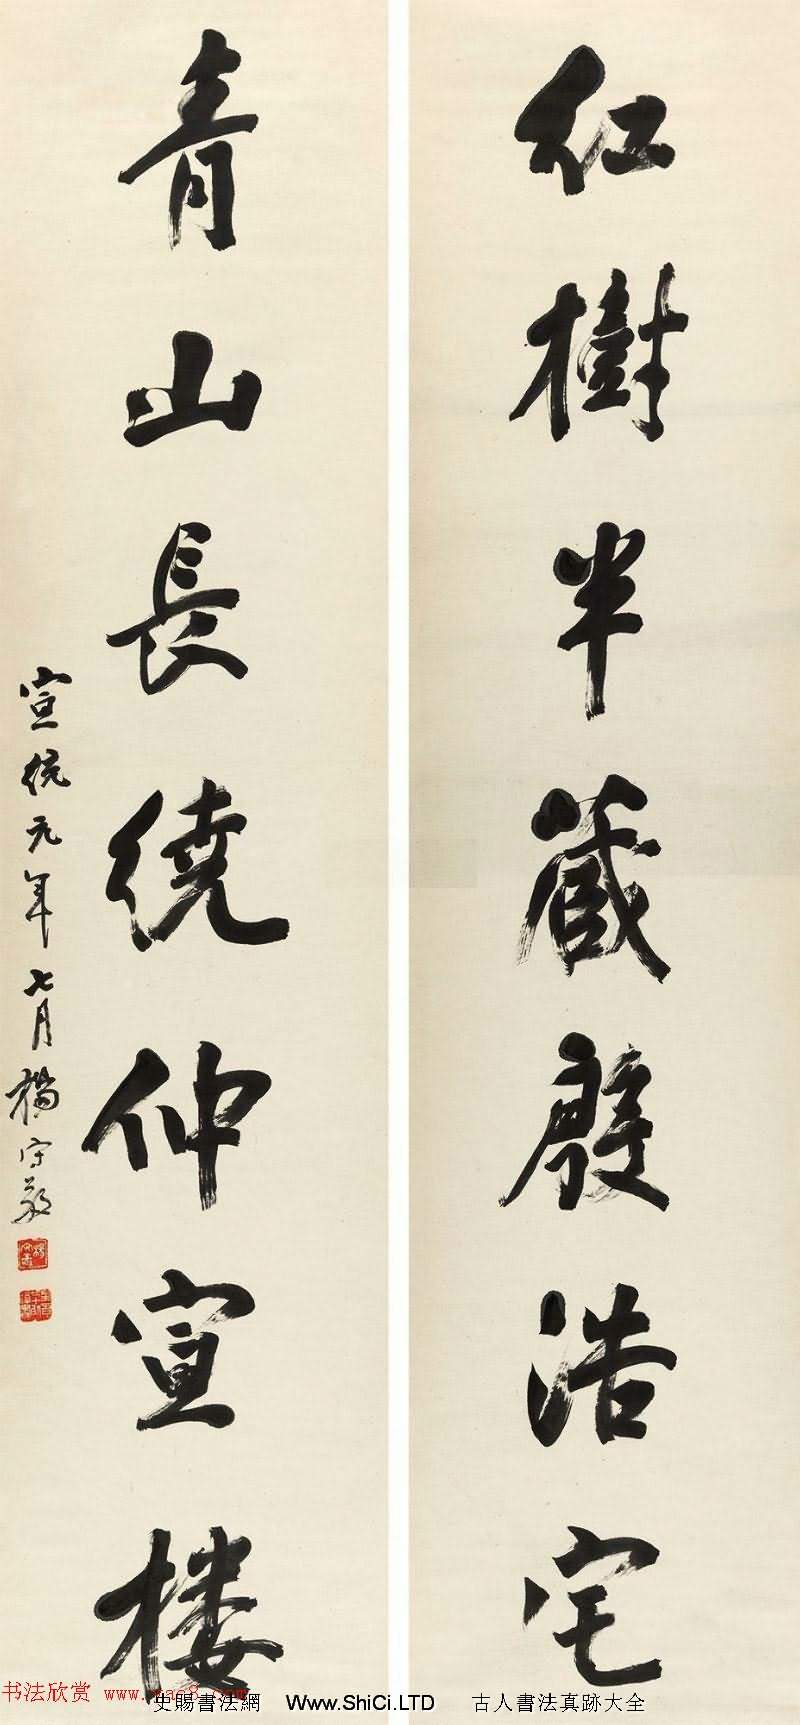 红樹半蔵殷浩宅
青山長繞仲宣楼
宣統元年七月楊守敬
书法欣赏 www.
史賜書法網 Www.ShiCi.LTD 古人書法真跡大全